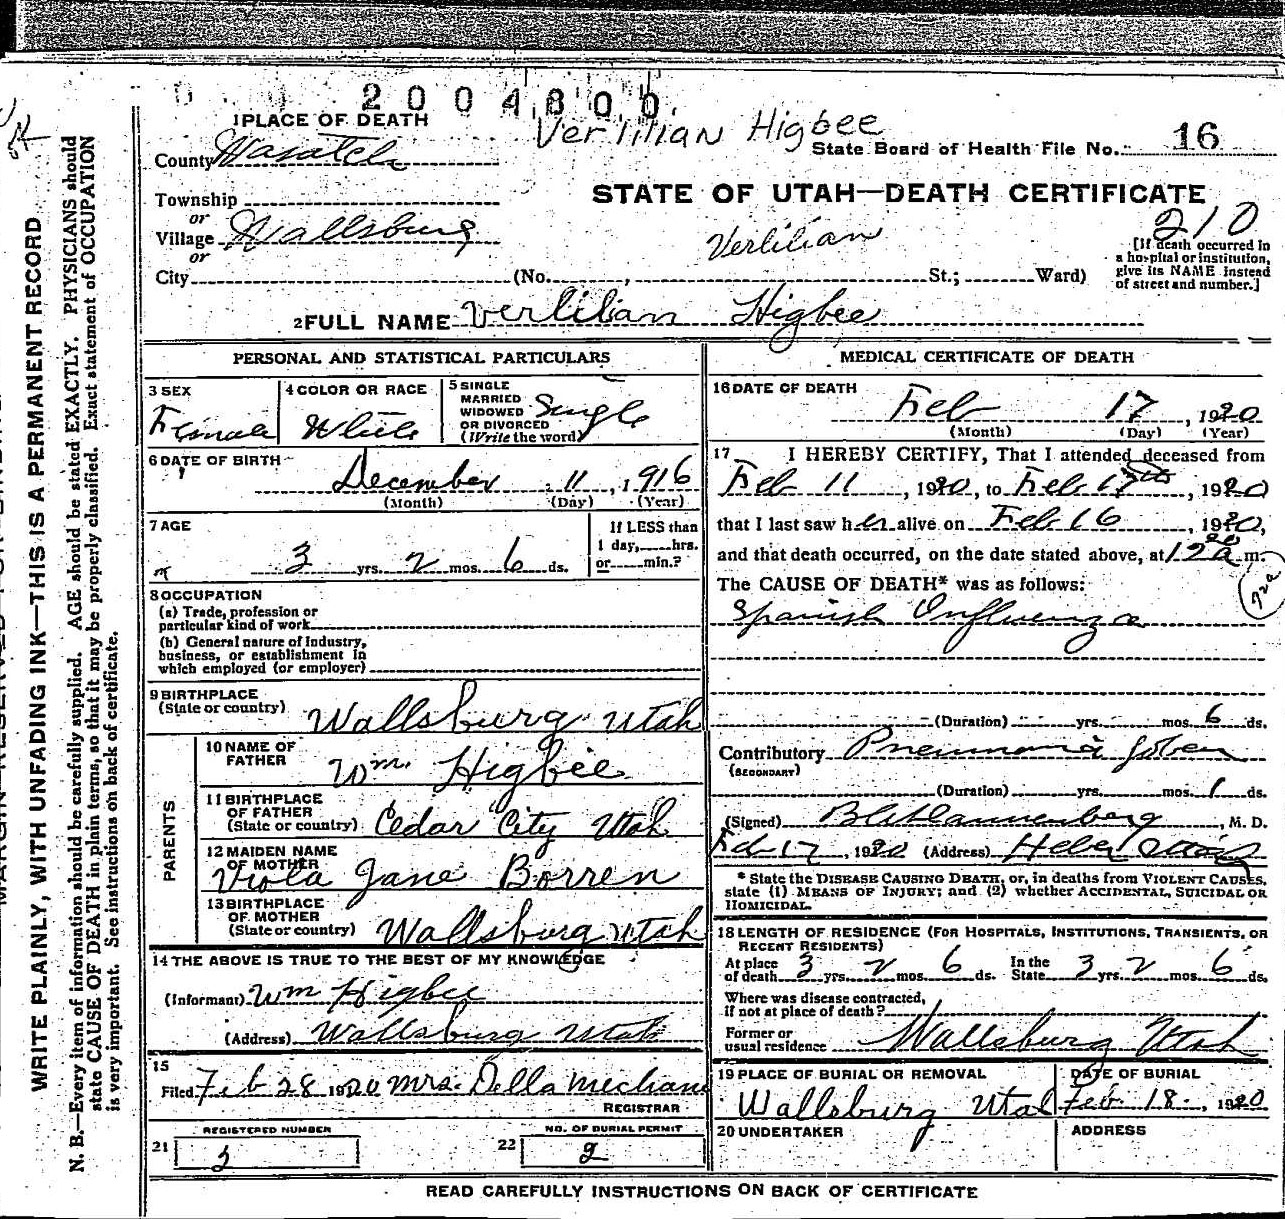 2004800
1 PLACE OF DEATH
Verlilian Higbee
County Wasatch
State Board of Health File No. 16
Township
STATE OF UTAH—DEATH CERTIFICATE
or
Village Wallsburg
210
or
Verlilian
City (No. , St.; Ward)
[If death occurred in
a hospital or institution,
give its NAME instead
of street and number.]
2 FULL NAME Verlilian Higbee
PERSONAL AND STATISTICAL PARTICULARS
3 SEX
Female
4 COLOR OR RACE
White
5 SINGLE
MARRIED
WIDOWED
OR DIVORCED
(Write the word)
Single
6 DATE OF BIRTH
December 11, 1916
(Month) (Day) (Year)
7 AGE
3 yrs. 2 mos. 6 ds.
If LESS than
1 day, hrs.
or min.?
8 OCCUPATION
(a) Trade, profession or
particular kind of work
(b) General nature of Industry,
business, or establishment in
which employed (or employer)
9 BIRTHPLACE
(State or country)
Wallsburg Utah
PARENTS
10 NAME OF
FATHER
Wm. Higbee
11 BIRTHPLACE
OF FATHER
(State or country) Cedar City Utah
12 MAIDEN NAME
OF MOTHER
Viola Jane Borren
13 BIRTHPLACE
OF MOTHER
(State or country) Wallsburg Utah
14 THE ABOVE IS TRUE TO THE BEST OF MY KNOWLEDGE
(Informant) Wm Higbee
(Address) Wallsburg Utah
15
Filed Feb 28 1920 Mrs. Della Mecham
REGISTRAR
REGISTERED NUMBER
21 3
NO. OF BURIAL PERMIT
22 2
MEDICAL CERTIFICATE OF DEATH
16 DATE OF DEATH
Feb 17, 1920
(Month) (Day) (Year)
17 I HEREBY CERTIFY, That I attended deceased from
Feb 11, 1920, to Feb 17th, 1920
that I last saw her alive on Feb 16, 1920,
and that death occurred, on the date stated above, at 12 a m.
The CAUSE OF DEATH* was as follows:
Spanish Influenza
(Duration) yrs. mos. 6 ds.
Contributory Pneumonia Lobar
(SECONDARY)
(Duration) yrs. mos. 1 ds.
(Signed) , M. D.
Feb 17, 1920 (Address) Heber Utah
* State the DISEASE CAUSING DEATH, or, in deaths from VIOLENT CAUSES,
state (1) MEANS OF INJURY; and (2) whether ACCIDENTAL, SUICIDAL OR
HOMICIDAL.
18 LENGTH OF RESIDENCE (FOR HOSPITALS, INSTITUTIONS, TRANSIENTS, OR
RECENT RESIDENTS)
At place
of death 3 yrs. 2 mos. 6 ds.
In the
State 3 yrs. 2 mos. 6 ds.
Where was disease contracted,
if not at place of death?
Former or
usual residence Wallsburg Utah
19 PLACE OF BURIAL OR REMOVAL
Wallsburg Utah
DATE OF BURIAL
Feb. 18., 1920
20 UNDERTAKER
ADDRESS
READ CAREFULLY INSTRUCTIONS ON BACK OF CERTIFICATE
WRITE PLAINLY, WITH UNFADING INK—THIS IS A PERMANENT RECORD
N. B.—Every item of information should be carefully supplied. AGE should be stated EXACTLY. PHYSICIANS should
state CAUSE OF DEATH in plain terms, so that it may be properly classified. Exact statement of OCCUPATION
is very important. See instructions on back of certificate.